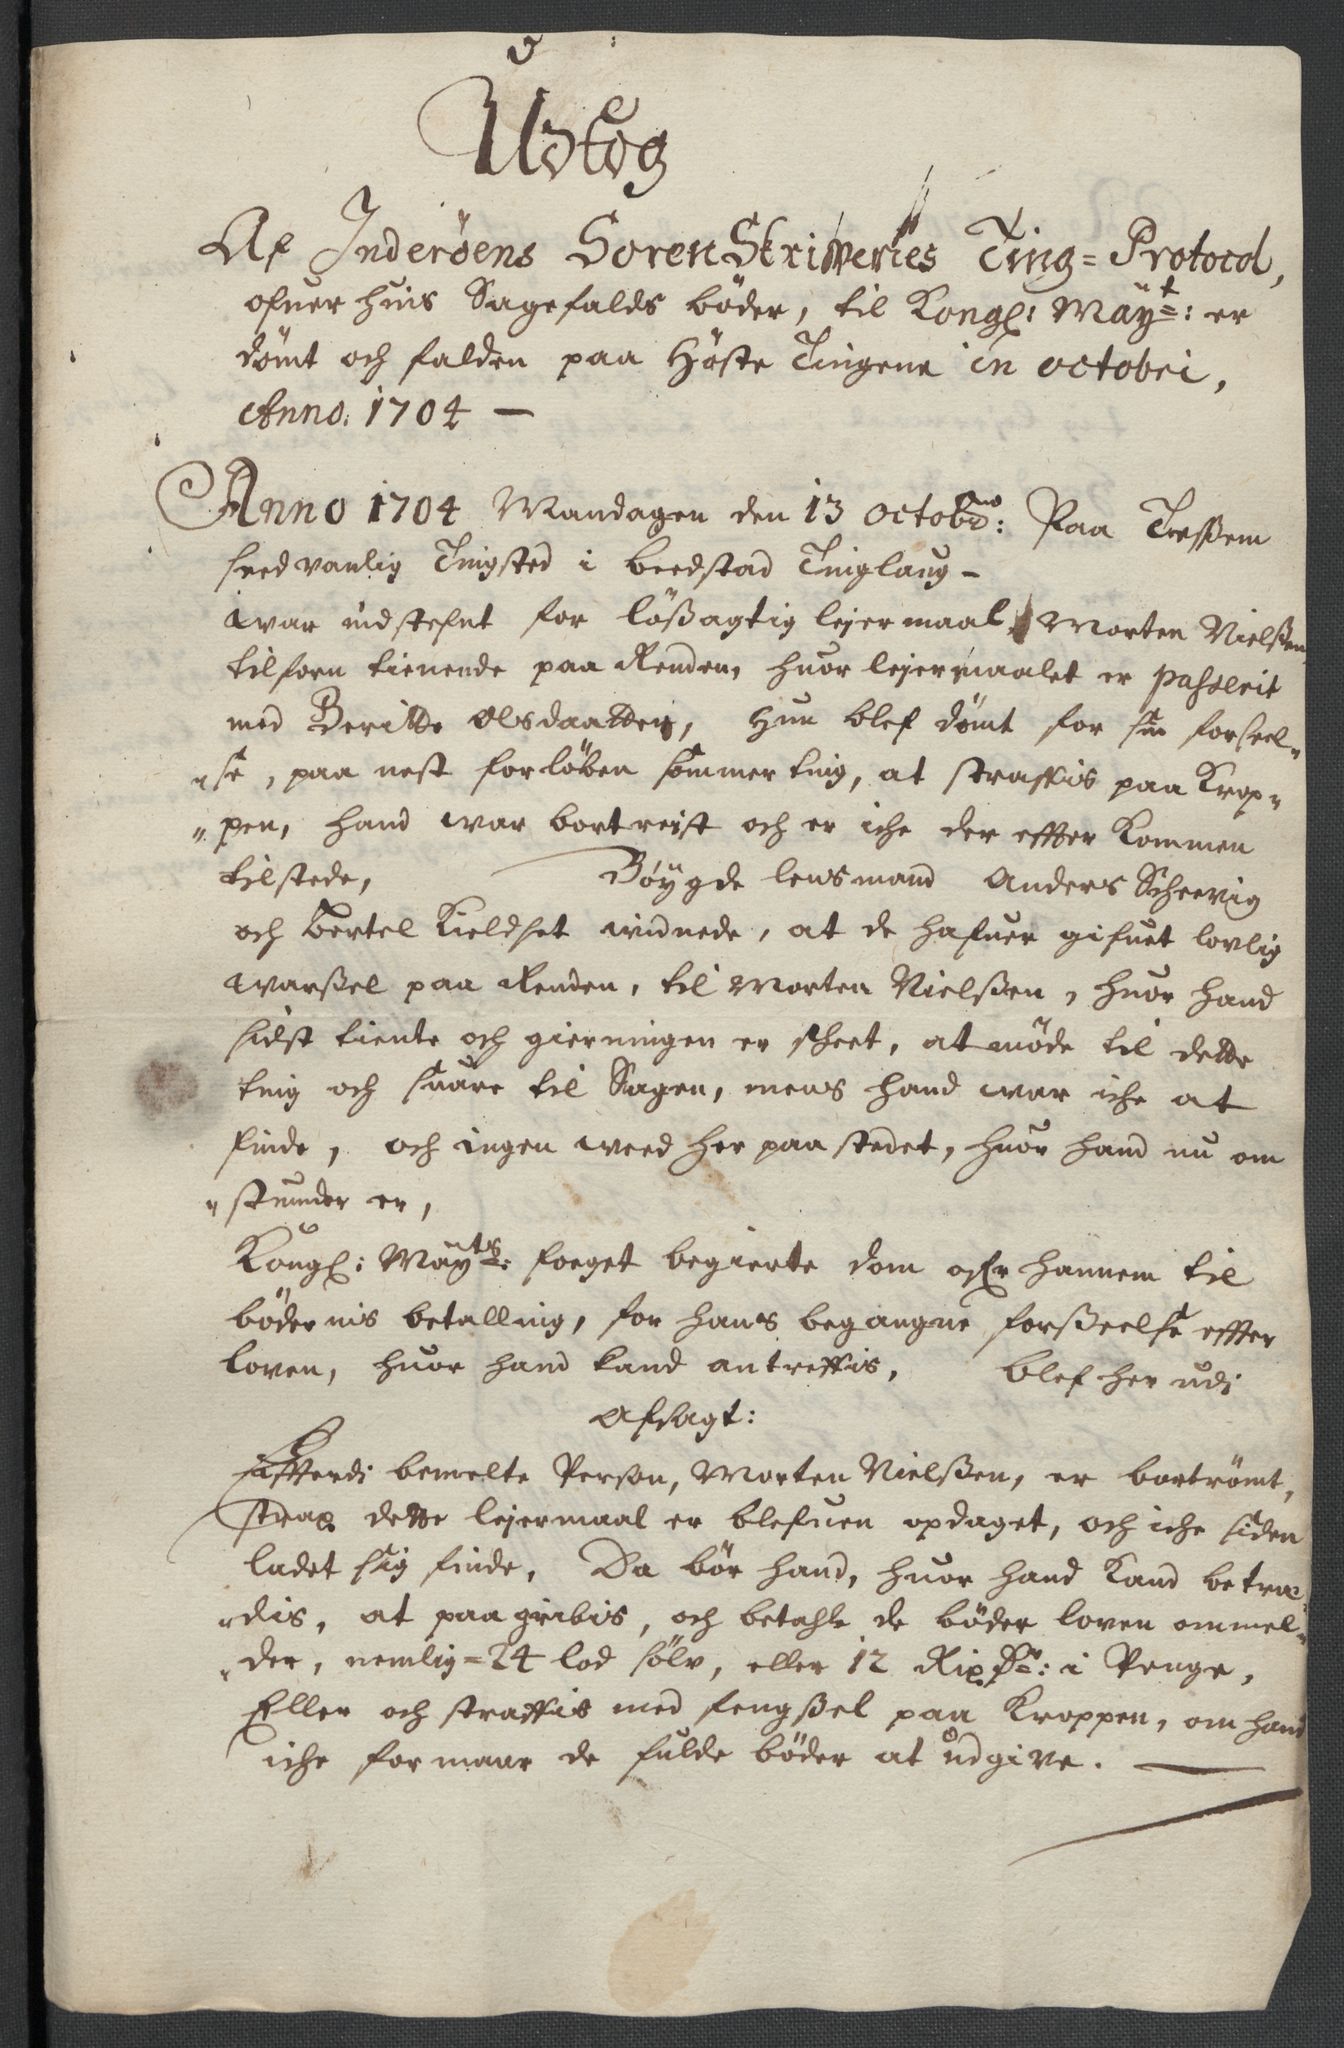 Udtog
Af Inderöens SorenSkrifveries Ting=Protocol,
ofuer huis Sagefalds böder, til Kongl: Mayt: er
dömt och falden paa Höste Tingene in octobri,
Anno. 1704 —
Anno 1704 Mandagen den 13 octobr: Paa
sædvanlig Tingsted i beedstad Tinglaug –
war indstefnt for lößagtig lejermaal, Morten Nielßen,
tilforn tienende paa Renden, huor lejermaalet er passerit
med Beritte Olsdaatter, hun blef dömt for sin forseel"
"se, paa nest forløben sommer ting, at straffis paa Krop"
"pen, hand war bortreist och er iche der effter kommen
tilstede, Böygde lensmand Anders Scheevig
och Bertel Kieldset widnede, at de hafuer gifuet lovlig
warßel paa Renden, til Morten Nielßen, huor hand
sidst tiente och gierningen er scheet, at möde til dette
ting och suare til Sagen, mens hand war iche at
finde, och ingen weed her paa stedet, huor hand nu om
"stunder er,
Kongl: Mayts: foeget begierte dom ofr hannem til
bödernis betalling, for hans begangne forßeelse effter
loven, huor hand kand antreffis, blef her udj
afsagt:
Effterdj bemelte Person, Morten Nielßen, er bortrömt,
strax dette lejermaal er blefuen opdaget, och iche siden
ladet sig finde, Da bör hand, huor hand kand betræ"
"dis, at paagribis, och betahle de böder loven ommel"
"der, nemlig=24 lod sölv, eller 12 Rixdr: i Penge,
Eller och straffis med fengßel paa Kroppen, om hand
iche formaar de fulde böder at udgive. —